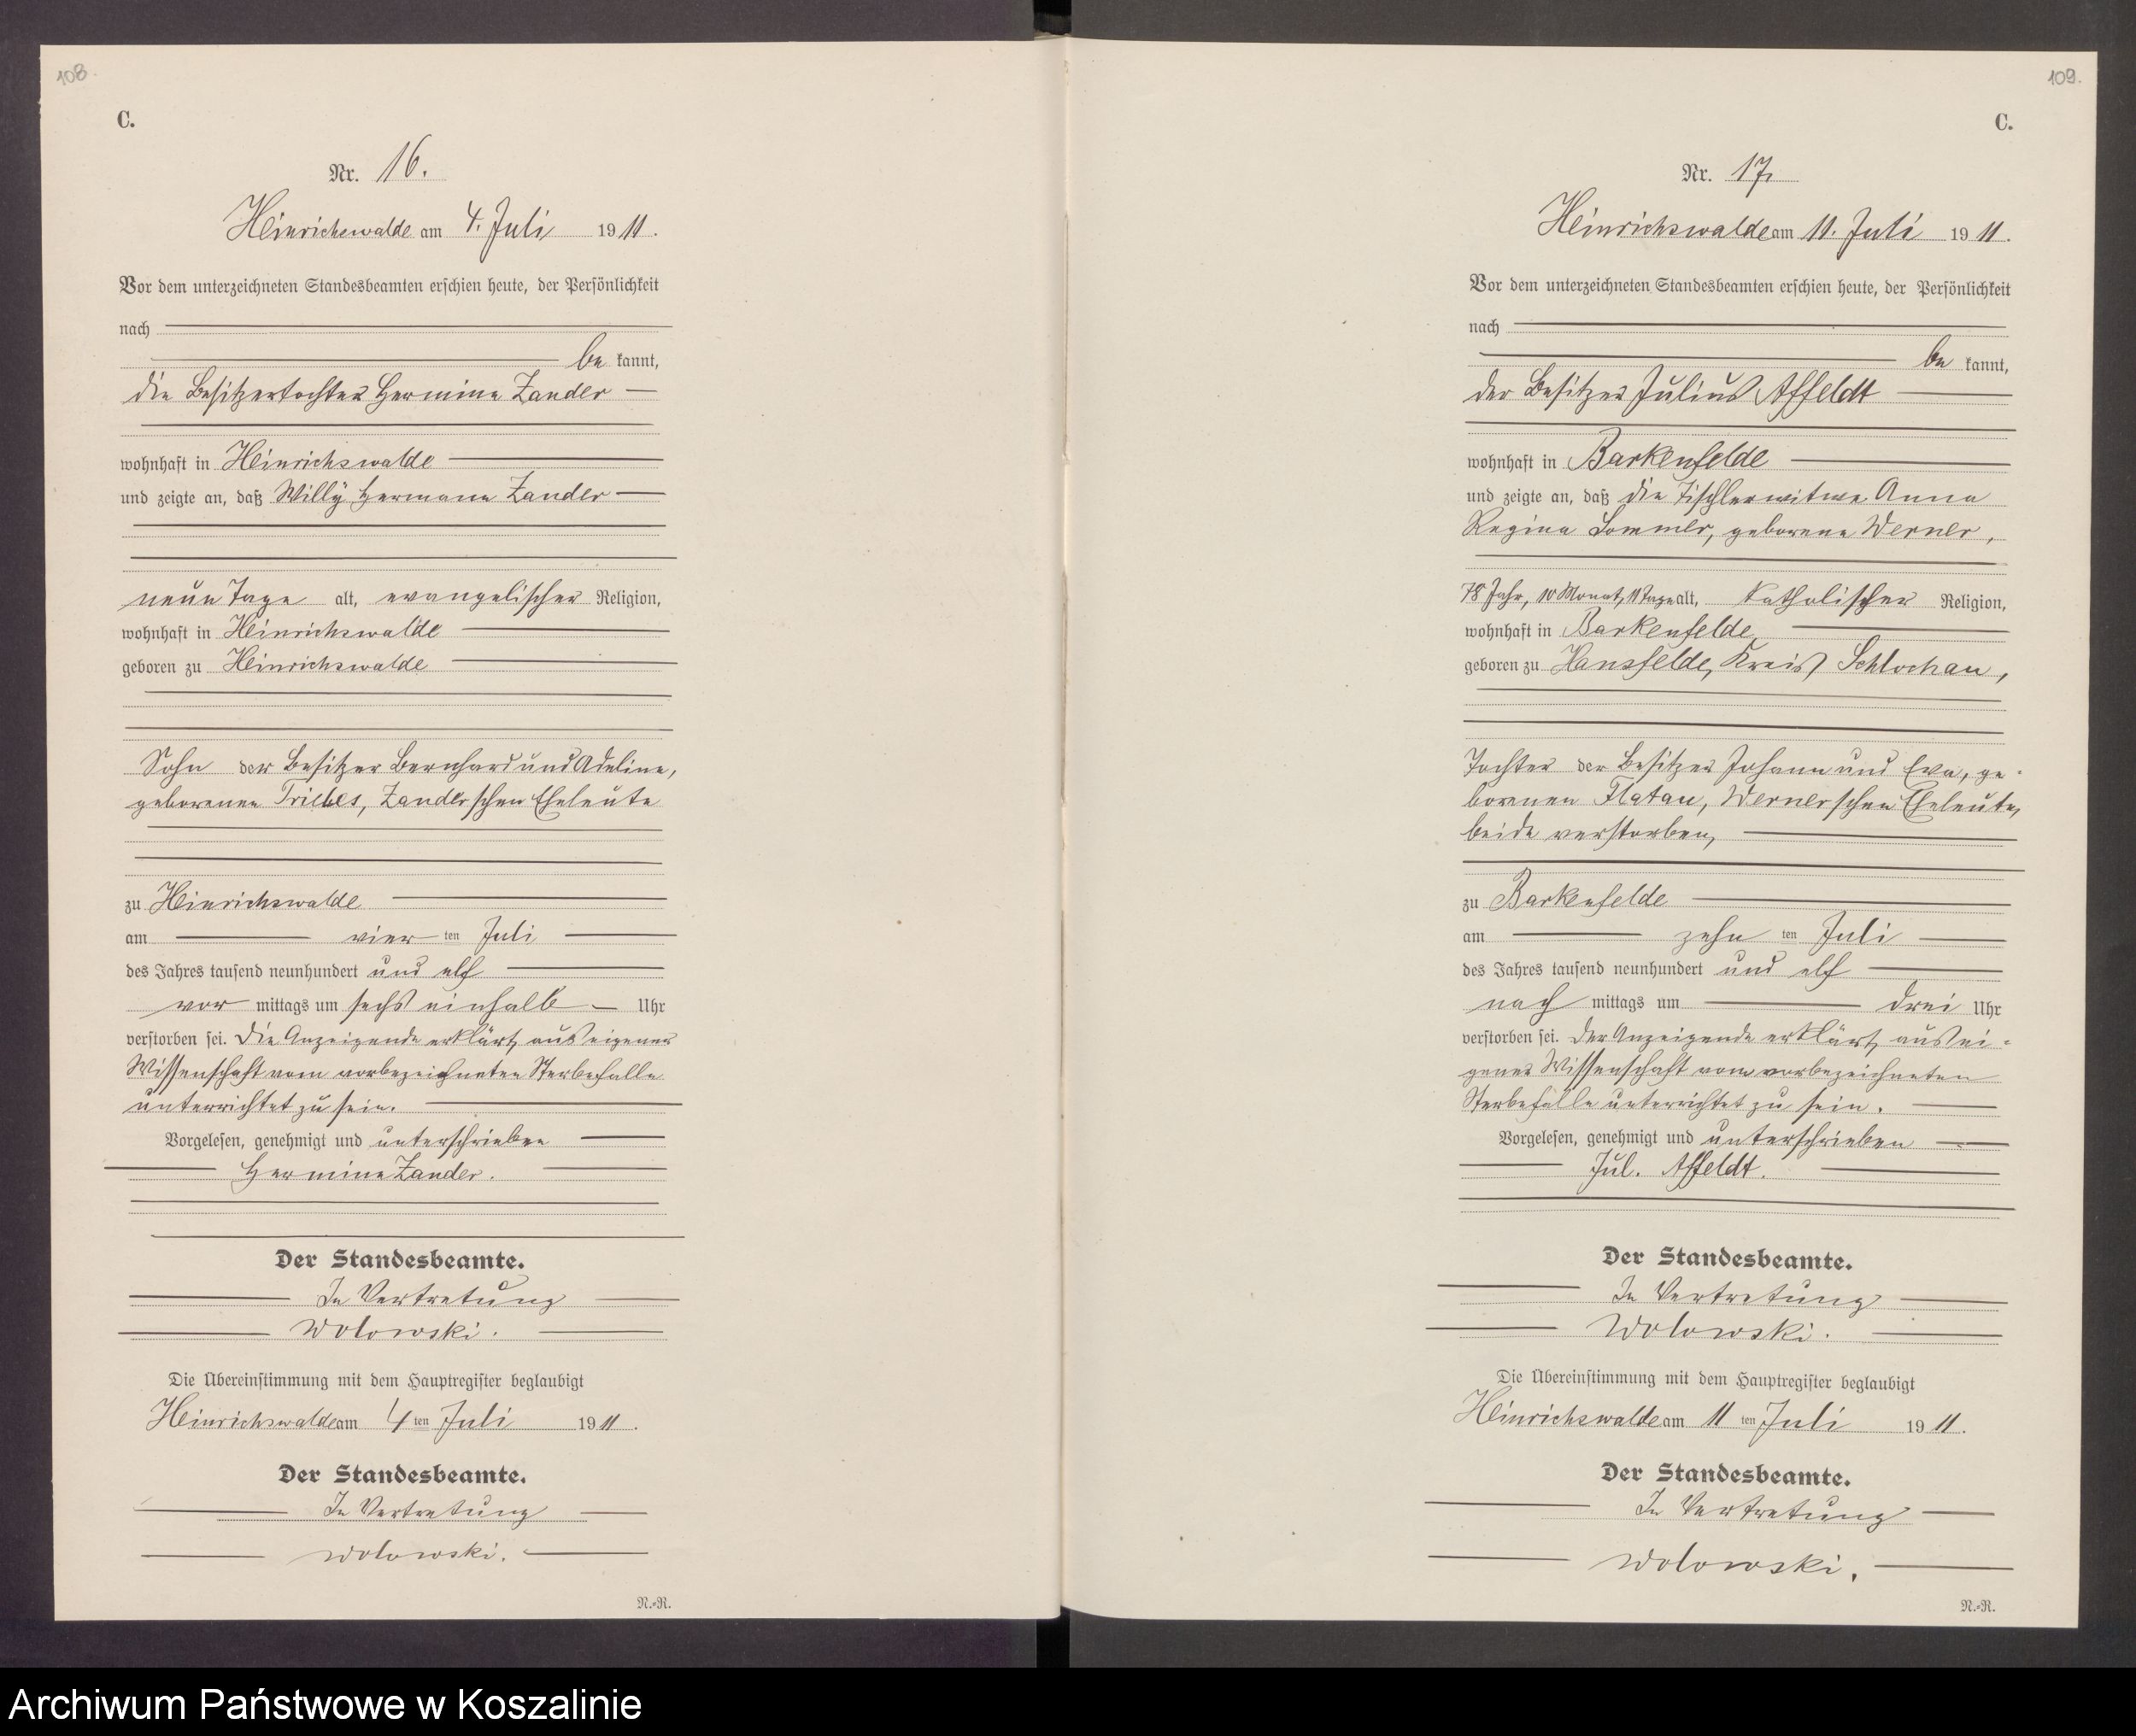 108.
C.
Nr. 16.
Heinrichswalde am 4. Juli 1911.
Vor dem unterzeichneten Standesbeamten erschien heute, der Persönlichkeit
nach
be kannt,
die Besitzertochter Hermine Zander
wohnhaft in Heinrichswalde
und zeigte an, daß Willy Hermann Zander
neun Tage alt, evangelischer Religion,
wohnhaft in Heinrichswalde
geboren zu Heinrichswalde
Sohn der Besitzer Bernhard und Adeline,
geborenen Zanderschen Eheleute
zu Heinrichswalde
am vier ten Juli
des Jahres tausend neunhundert und elf
vor mittags um sechs einhalb Uhr
verstorben sei. Die Anzeigende erklärt, aus eigener
Wissenschaft vom vorbezeichneten Sterbefalle
unterrichtet zu sein.
Vorgelesen, genehmigt und unterschrieben
Hermine Zander.
Der Standesbeamte.
In Vertretung
Wolowski.
Die Übereinstimmung mit dem Hauptregister beglaubigt
Heinrichswalde am 4 ten Juli 1911.
Der Standesbeamte.
In Vertretung
Wolowski.
N.-R.
109.
C.
Nr. 17.
Heinrichswalde am 11. Juli 1911.
Vor dem unterzeichneten Standesbeamten erschien heute, der Persönlichkeit
nach
be kannt,
der Besitzer Julius Affeldt
wohnhaft in Barkenfelde
und zeigte an, daß die Tischlerwitwe Anna
Regina Sommer, geborene Werner,
78 Jahr, 10 Monat, 11 Tage alt, katholischer Religion,
wohnhaft in Barkenfelde
geboren zu Hansfelde, Kreis Schlochau,
Tochter der Besitzer Johann und Eva, ge-
borenen Flatau, Wernerschen Eheleute,
beide verstorben,
zu Barkenfelde
am zehn ten Juli
des Jahres tausend neunhundert und elf
nach mittags um drei Uhr
verstorben sei. Der Anzeigende erklärt, aus ei-
gener Wissenschaft vom vorbezeichneten
Sterbefalle unterrichtet zu sein.
Vorgelesen, genehmigt und unterschrieben
Jul. Affeldt.
Der Standesbeamte.
In Vertretung
Wolowski.
Die Übereinstimmung mit dem Hauptregister beglaubigt
Heinrichswalde am 11 ten Juli 1911.
Der Standesbeamte.
In Vertretung
Wolowski.
N.-R.
Archiwum Państwowe w Koszalinie